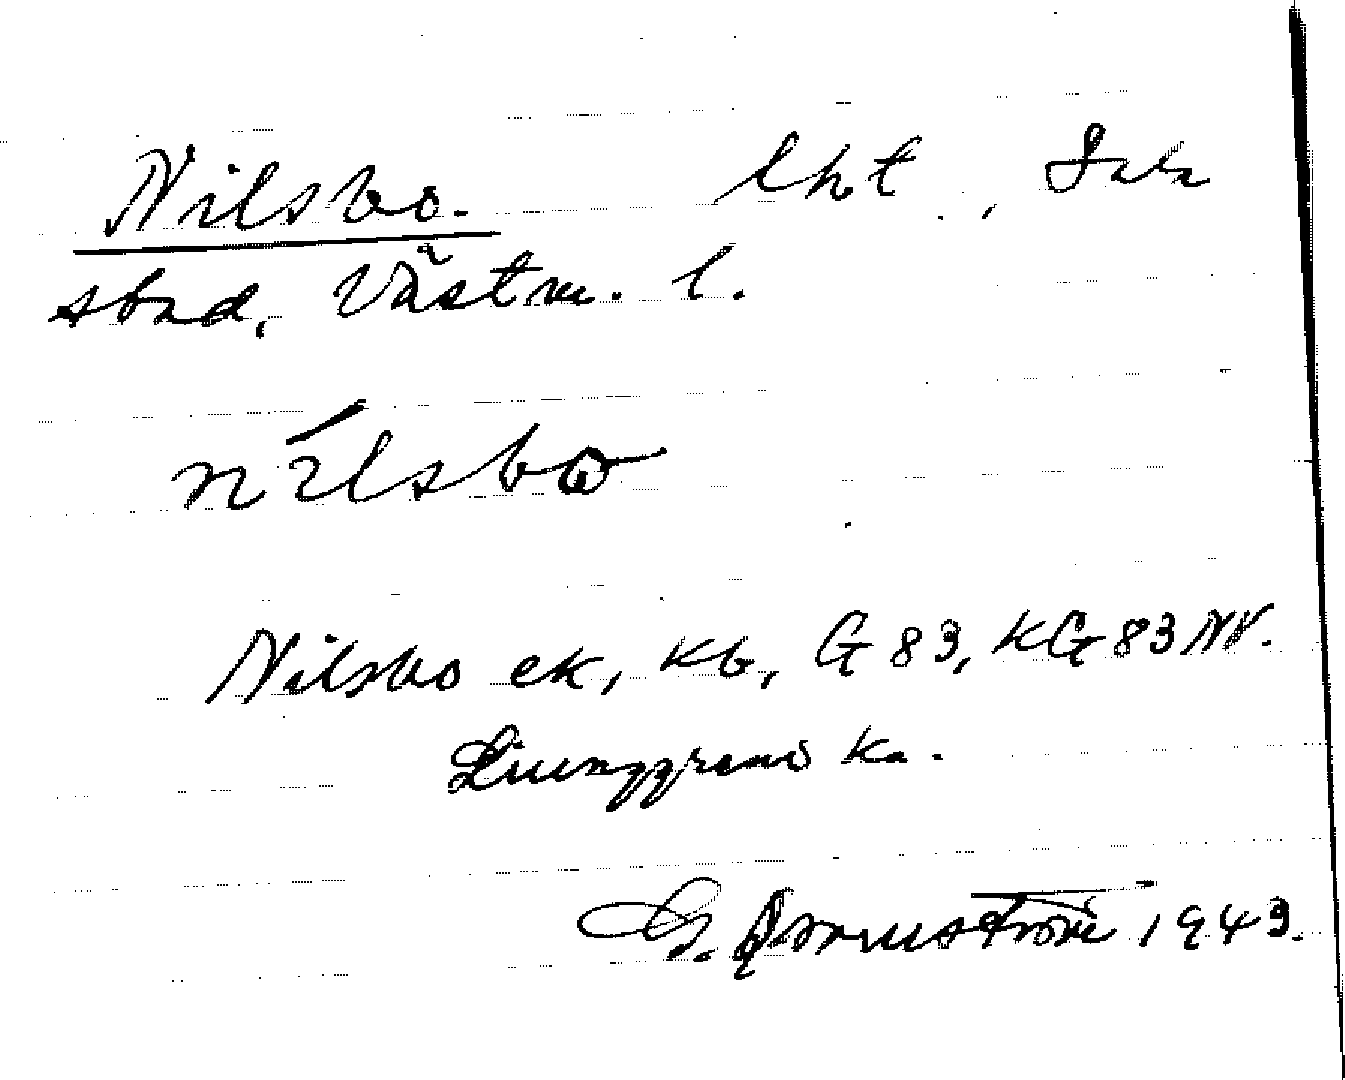 Nilsbo. lht., Sala
sbnd, Västm. l.
nílsbω
Nilsbo ek, kb, G 83, KG 83 NV.
Ljunggrens ka.
G. 1943.